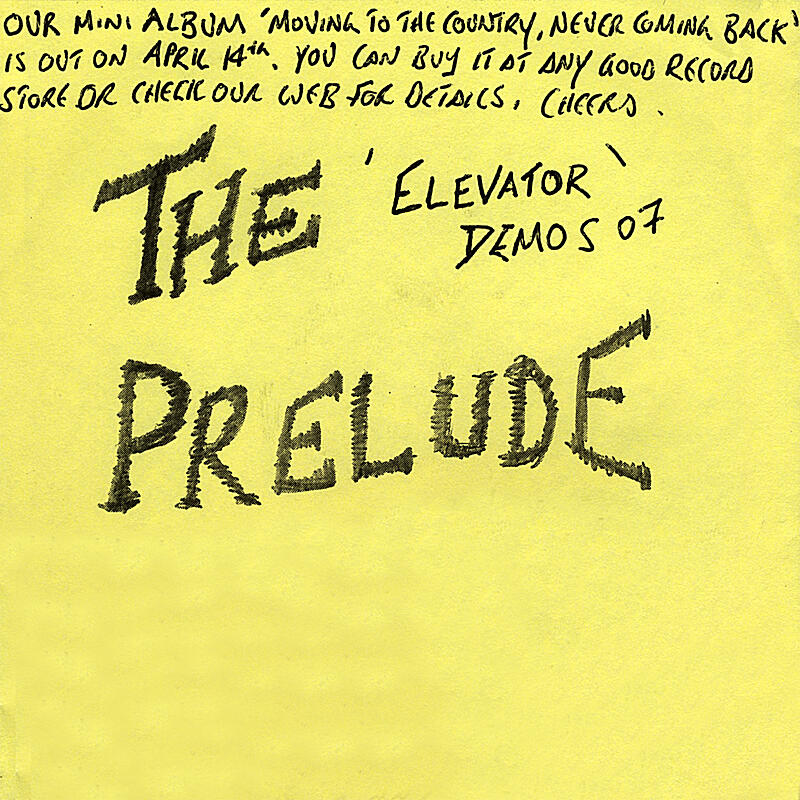 OUR MINI ALBUM 'MOVING TO THE COUNTRY, NEVER COMING BACK'
IS OUT ON APRIL 14th. YOU CAN BUY IT AT ANY GOOD RECORD
STORE OR CHECK OUR WEB FOR DETAILS. CHEERS.
THE
'ELEVATOR'
DEMOS 07
PRELUDE